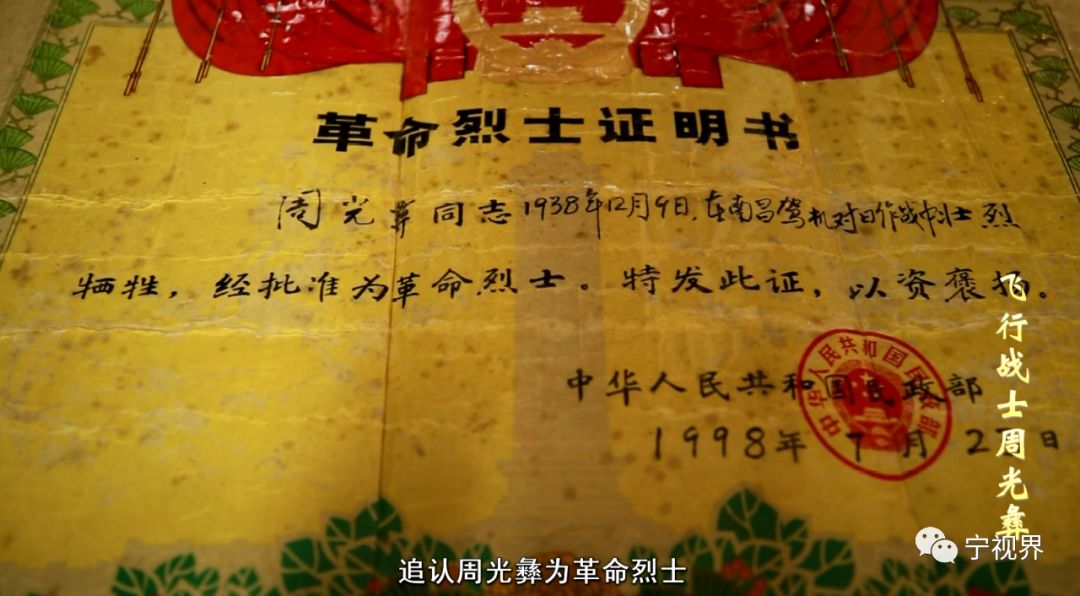 革命烈士证明书
周光彝同志1938年12月9日,在南昌驾机对日作战中壮烈
牺牲，经批准为革命烈士。特发此证，以资褒扬。
中华人民共和国民政部
1998年7月2 日
中华人民共和国民政部
飞行战士周光彝
宁视界
追认周光彝为革命烈士